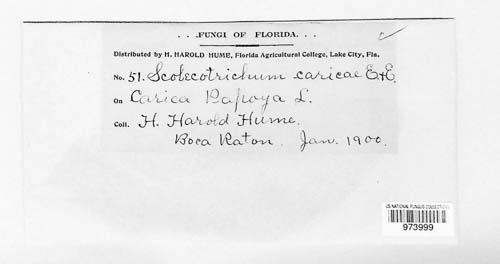 . . .FUNGI OF FLORIDA. . .
Distributed by H. HAROLD HUME, Florida Agricultural College, Lake City, Fla.
No. 51. Scolecotrichum caricae E&E.
On Carica Papoya L.
Coll. H. Harold Hume.
Boca Raton. Jan. 1900.
US NATIONAL FUNGUS COLLECTIONS
973999